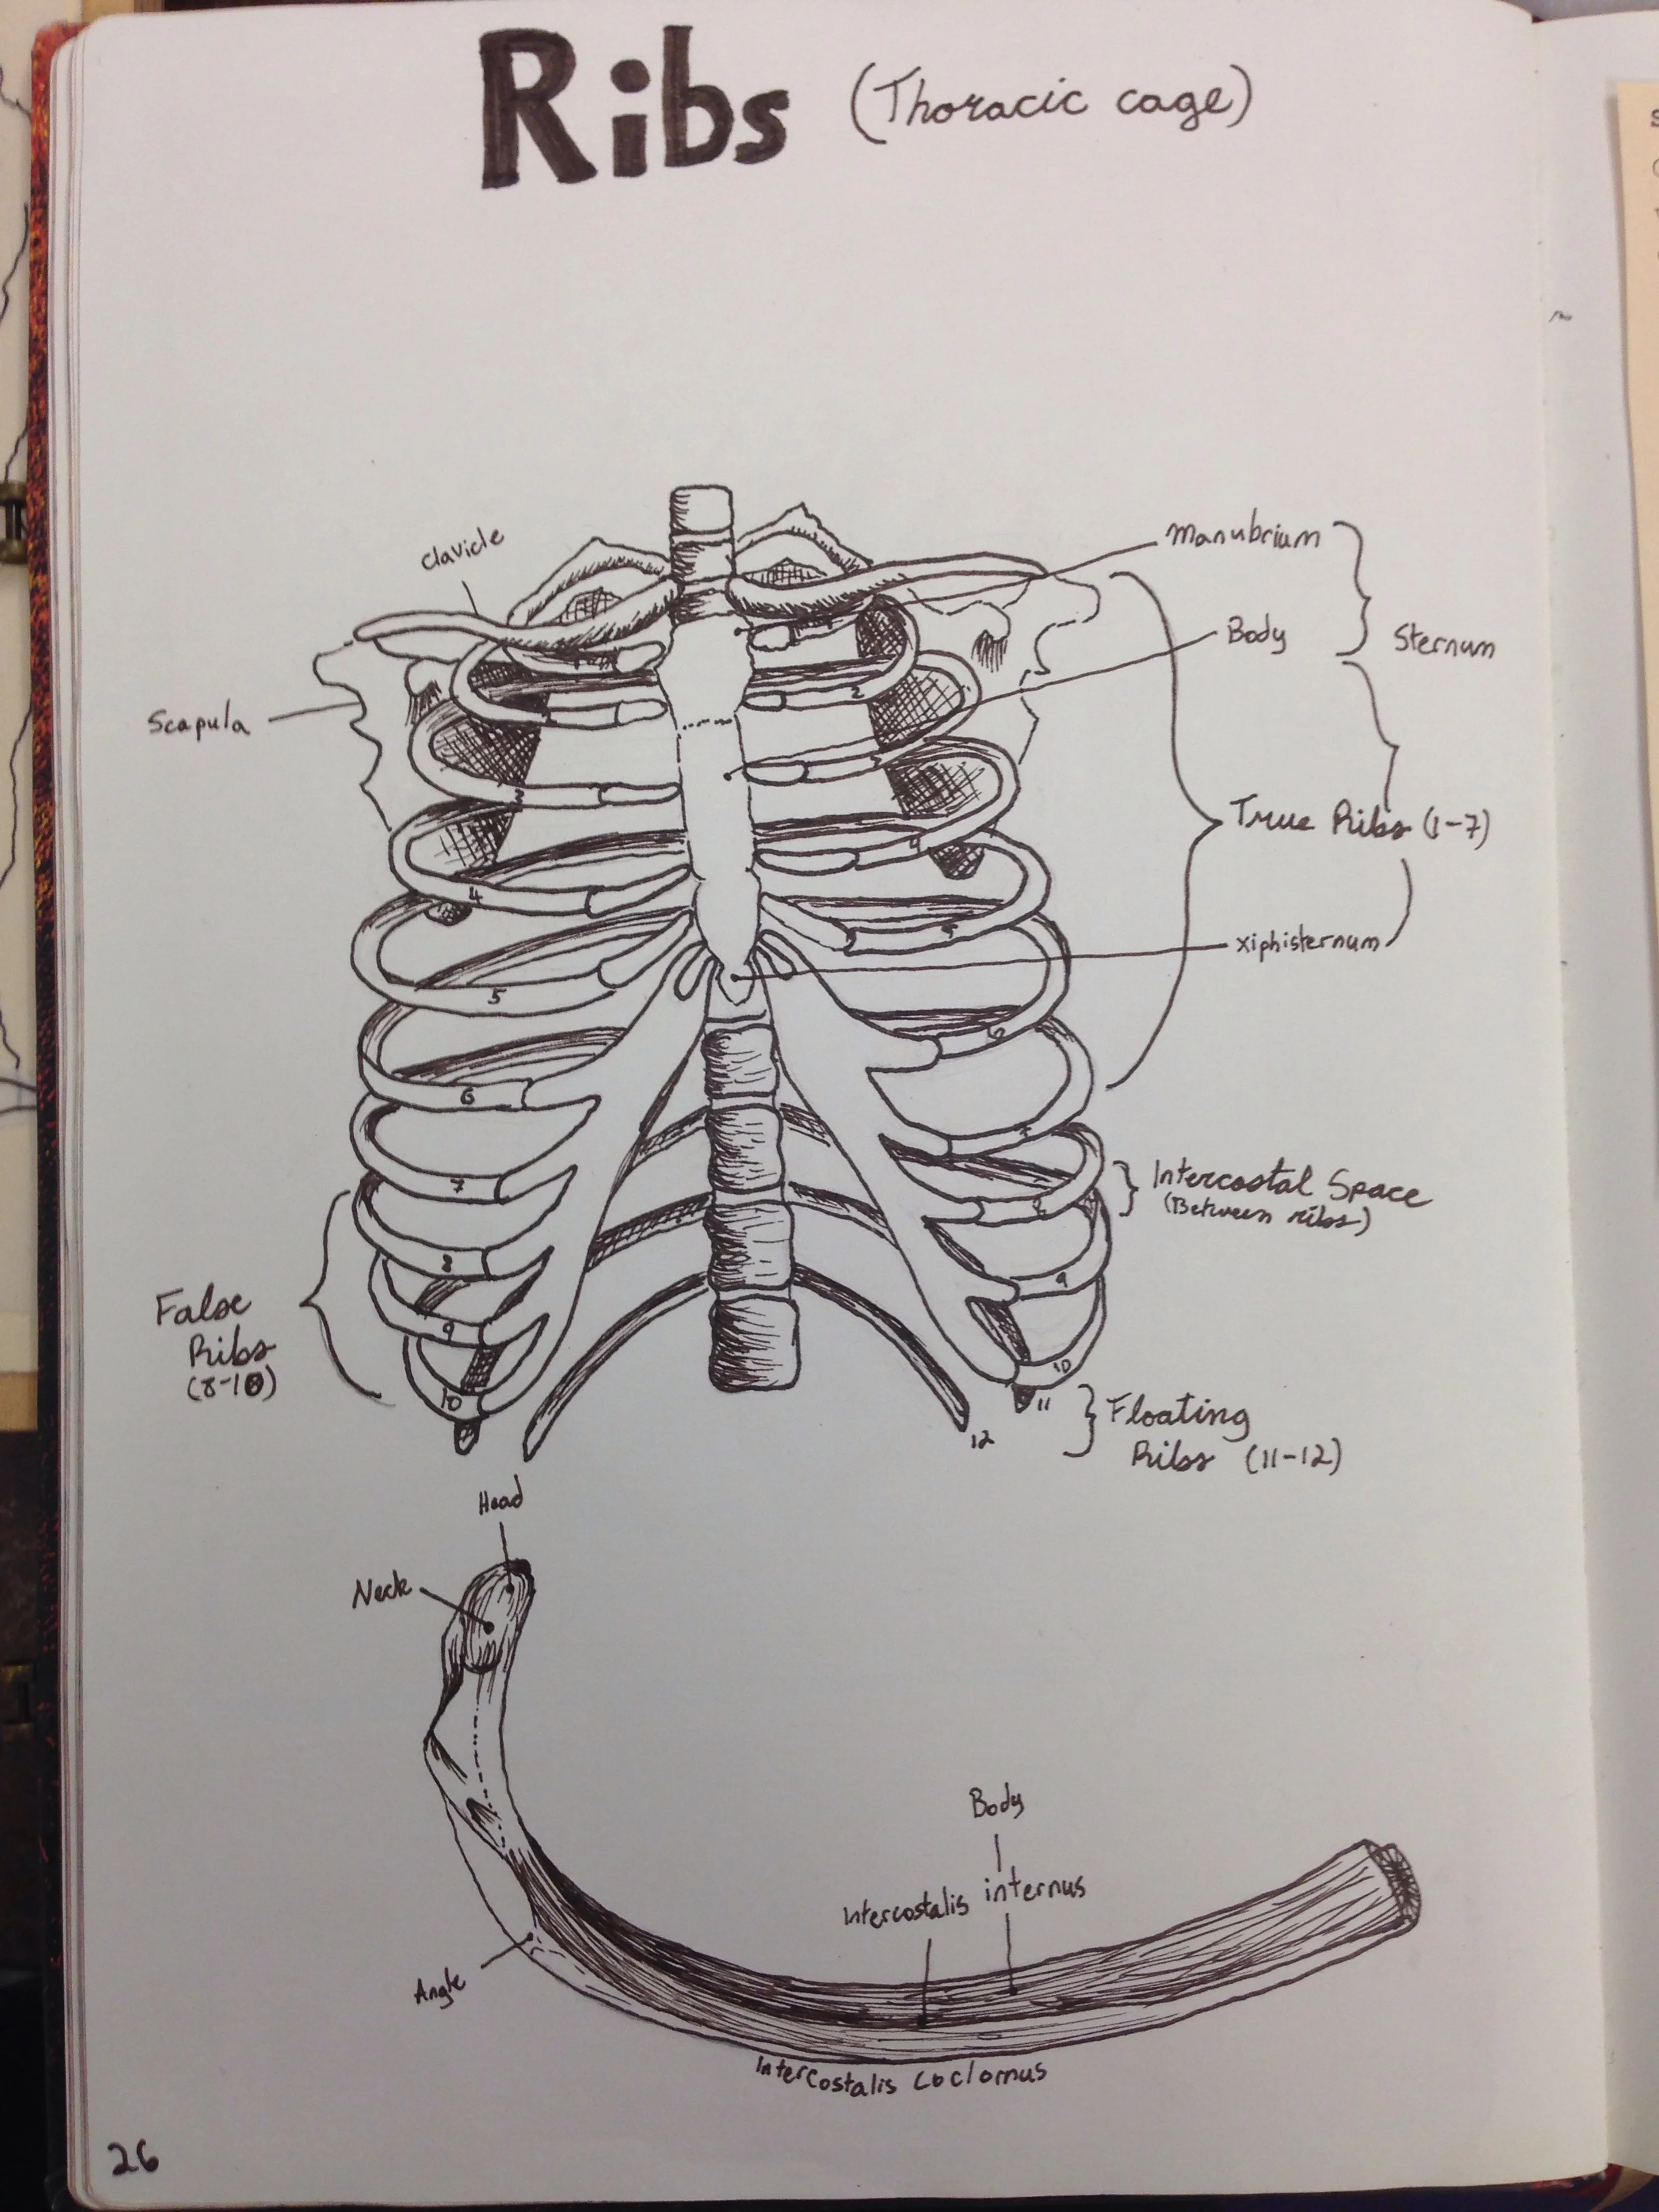 Ribs (Thoracic cage)
Clavicle
Manubrium
Body
Sternum
Scapula
True Ribs (1-7)
xiphisternum
Intercostal Space
(Between ribs)
False
Ribs
(8-10)
Floating
Ribs (11-12)
1
2
3
4
5
6
7
8
9
10
2
3
4
5
6
7
8
9
10
11
12
Head
Neck
Body
Intercostalis internus
Angle
Intercostalis
26